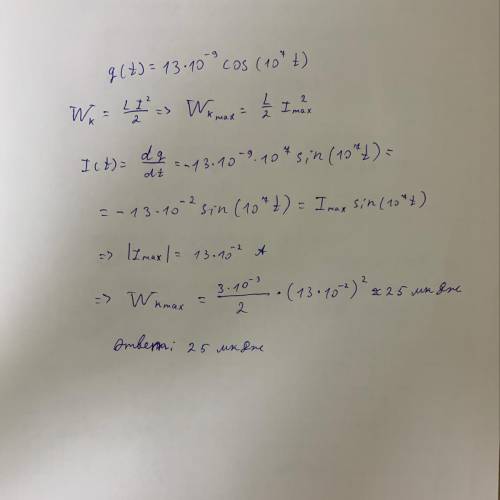 q(t) = 13·10⁻⁹ cos(10⁷t)
Wₖ = LI²/2 => Wₖₘₐₓ = L/2 I²ₘₐₓ
I(t) = dq/dt = -13·10⁻⁹·10⁷ sin(10⁷t) =
= -13·10⁻² sin(10⁷t) = Iₘₐₓ sin(10⁷t)
=> |Iₘₐₓ| = 13·10⁻² А
=> Wₖₘₐₓ = 3·10⁻³/2 · (13·10⁻²)² ≈ 25 мкДж
Ответ: 25 мкДж